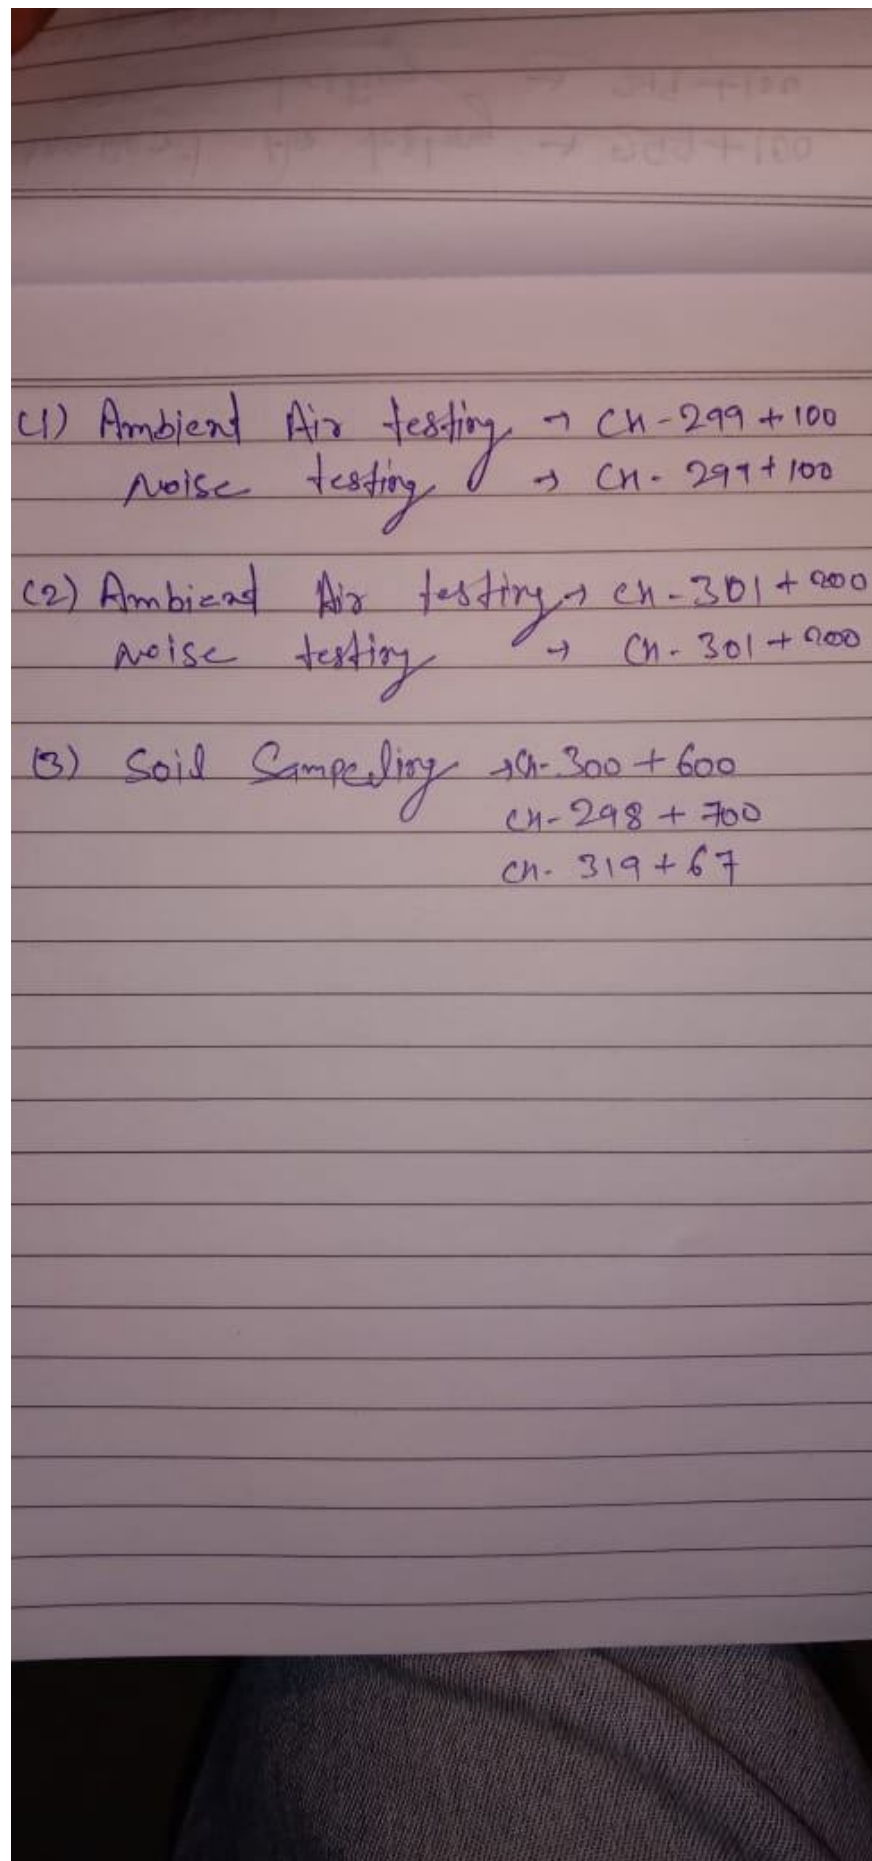 (1) Ambient Air testing → CH-299+100
Noise testing → CH- 299+100
(2) Ambient Air testing → CH-301+200
Noise testing → CH- 301+200
(3) Soil Sampeling → CH-300+600
CH-298+700
CH- 319+67